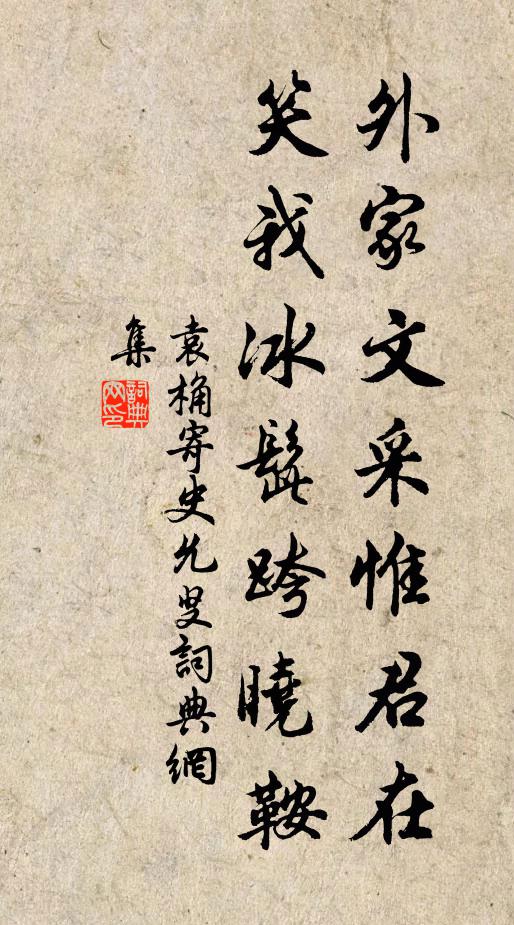 外家文采惟君在
笑我冰髭跨曉鞍
袁桷寄史允叟詞典網
集
詞典網印